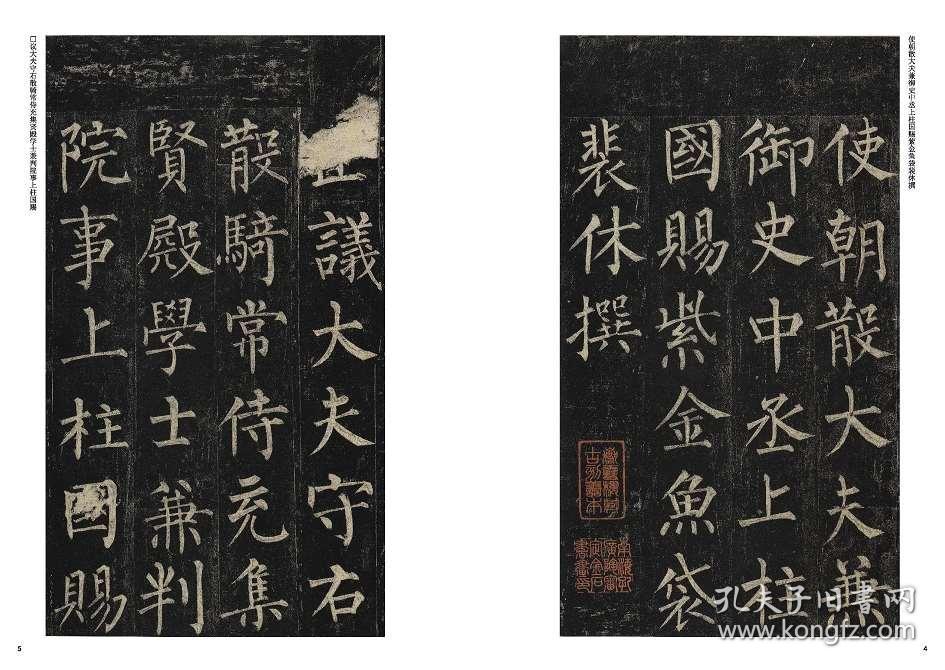 使朝散大夫兼御史中丞上柱国赐紫金鱼袋裴休撰
使朝散大夫兼
御史中丞上柱
國賜紫金魚袋
裴休撰
4
議大夫守右
散騎常侍充集
賢殿學士兼判
院事上柱國賜
□议大夫守右散骑常侍充集贤殿学士兼判院事上柱国赐
5
孔夫子旧书网
www.kongfz.com